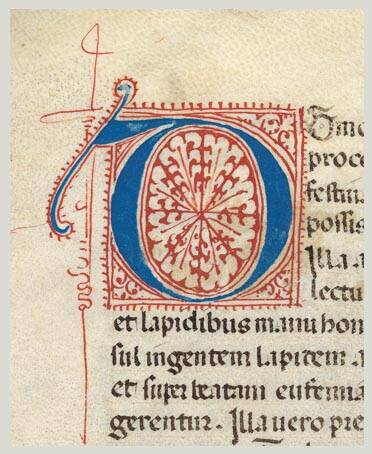 D Omc
proce
festin
possis
Illa a
lectu
et lapidibus manu hon
sul ingentem lapitem a
et super beatam eufemia
gerentur. Illa uero pre